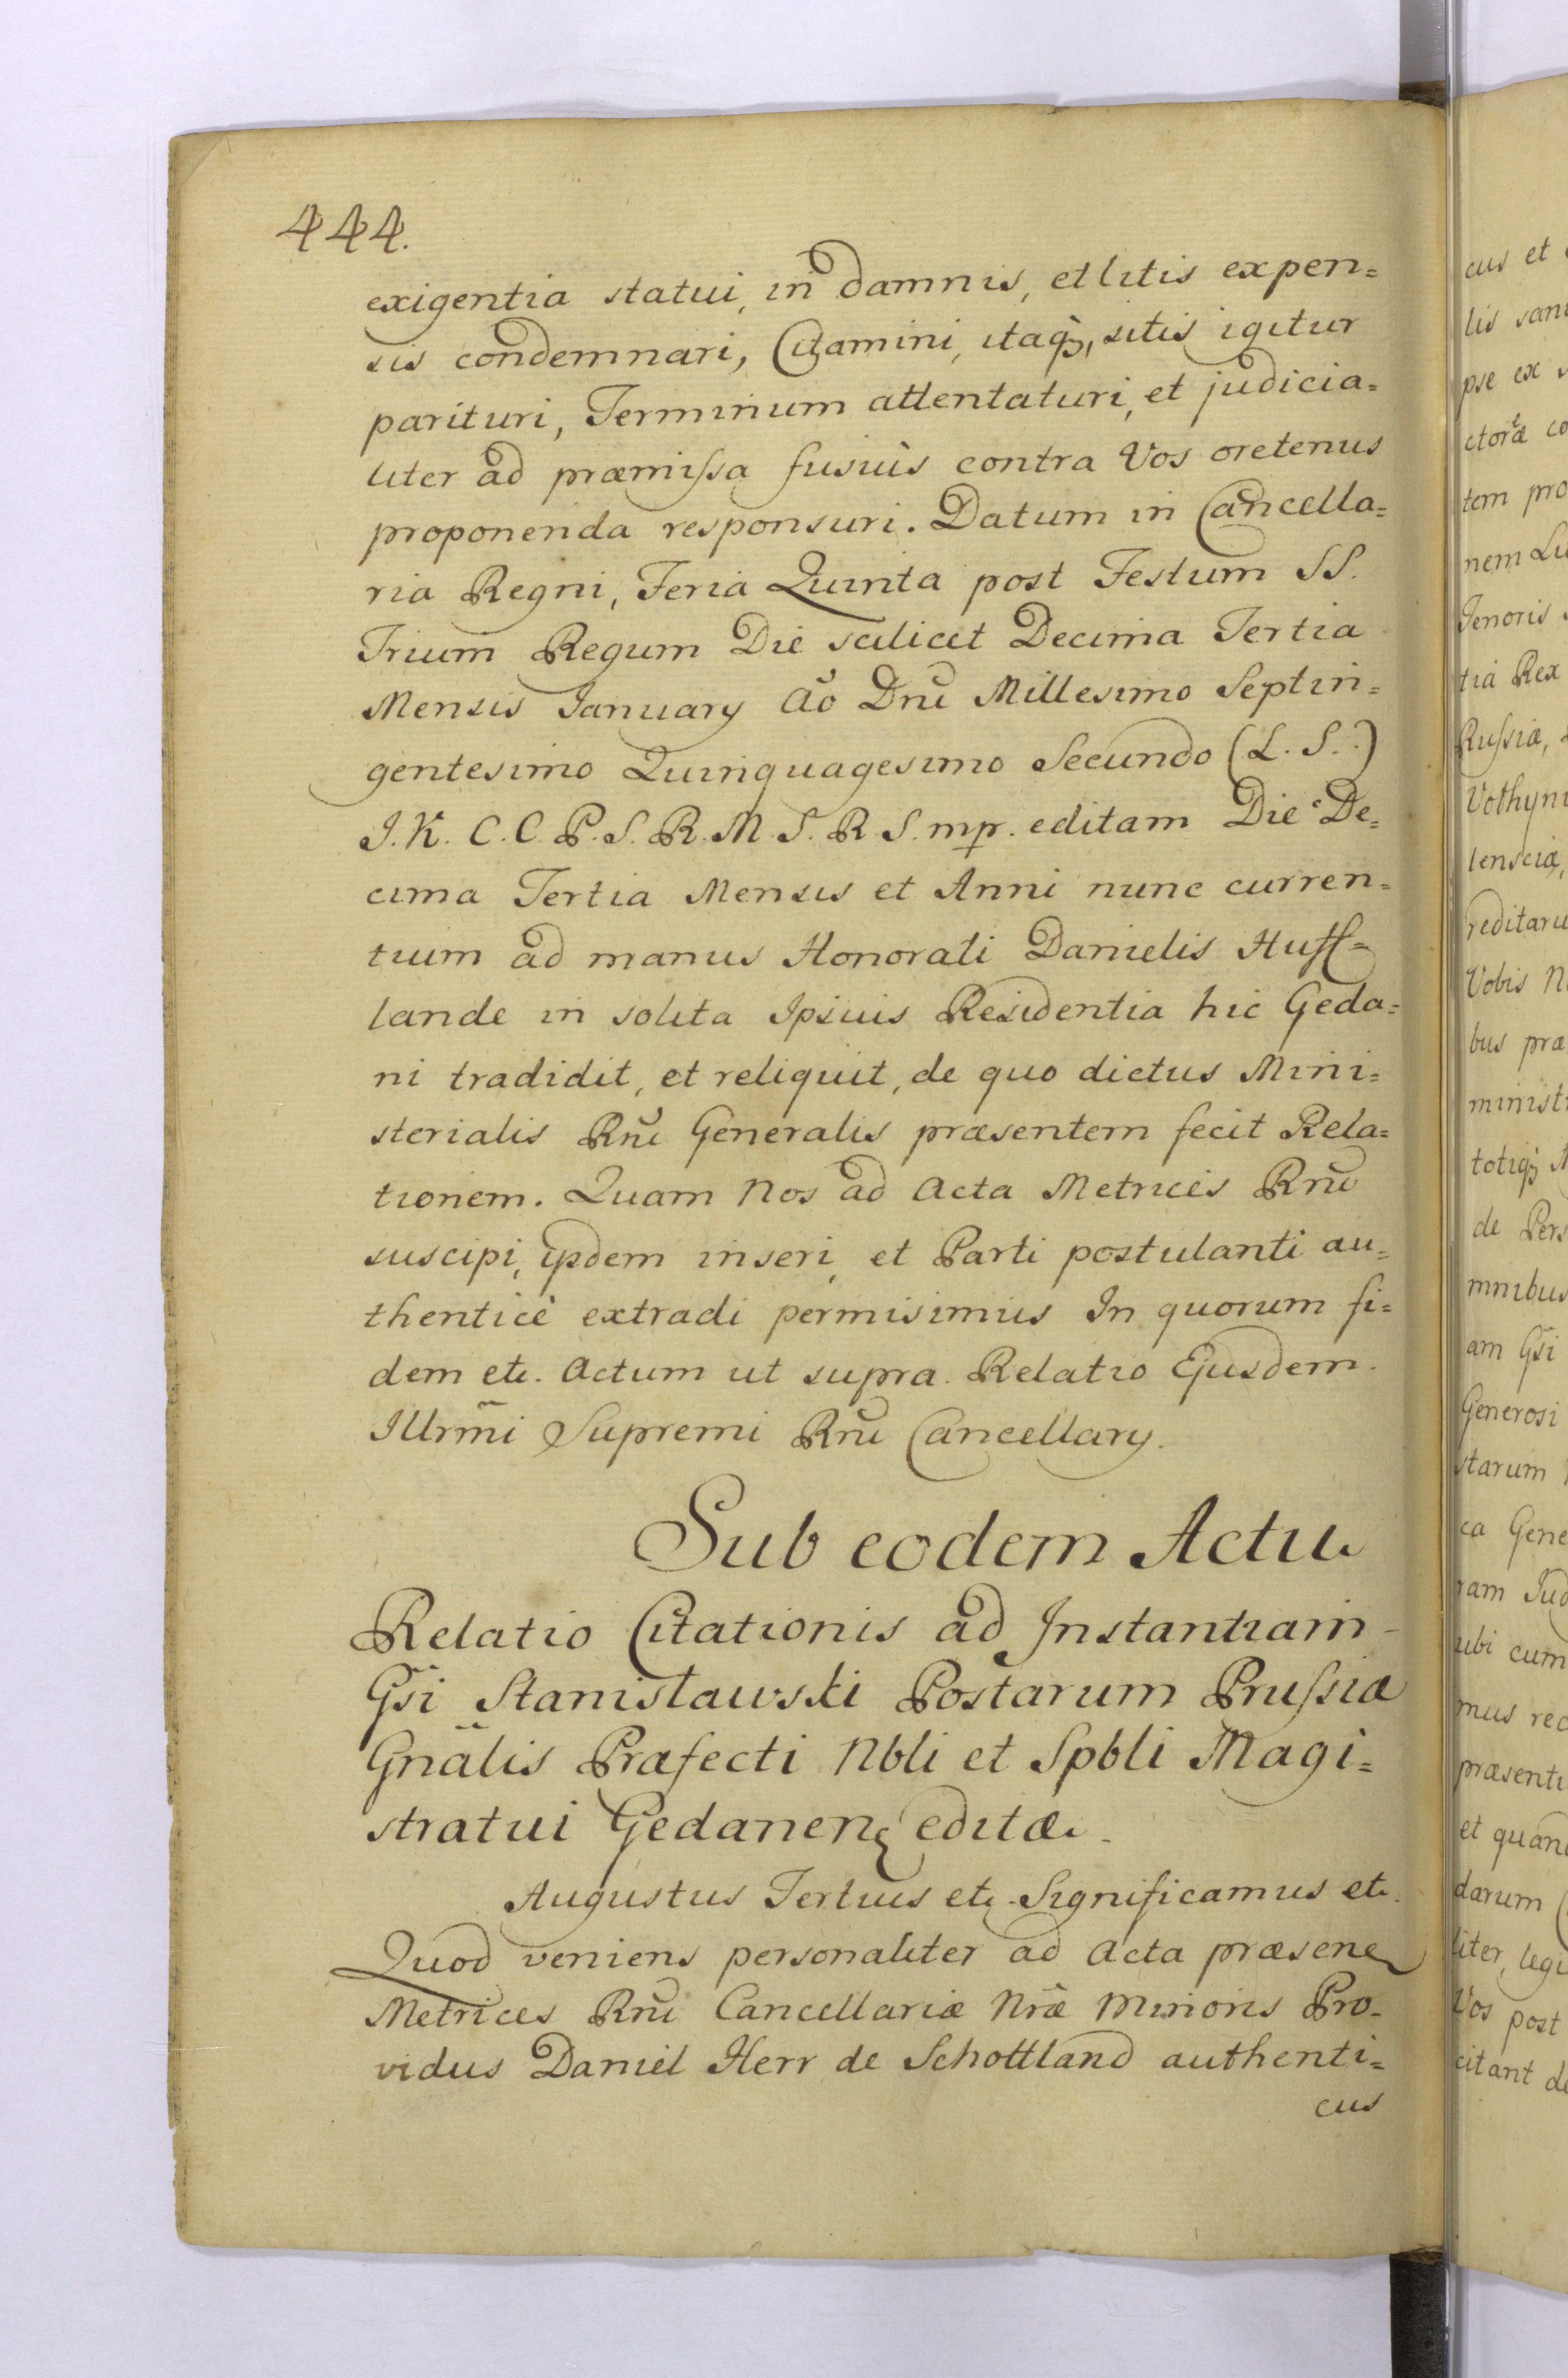 444.
exigentia statui, in damnis, et litis expen=
sis condemnari, Citamini, itaq₃, sitis igitur
parituri, Terminum attentaturi, et judicia=
liter ad præmissa fusiùs contra Vos oretenus
proponenda responsuri. Datum in Cancella=
ria Regni, Feria Quinta post Festum SS.
Trium Regum Die scilicet Decima Tertia
Mensis January Aõ Dni Millesimo Septin=
gentesimo Quinquagesimo Secundo (L. S.)
J. K. C. C. P. S. R. M. S. R. S. mp. editam Die De=
cima Tertia Mensis et Anni nunc curren=
tium ad manus Honorati Danielis Huff=
lande in solita Ipsius Residentia hic Geda=
ni tradidit, et reliquit, de quo dictus Mini=
sterialis Rni Generalis præsentem fecit Rela=
tionem. Quam Nos ad Acta Metrices Rni
suscipi, ijsdem inseri, et Parti postulanti au=
thenticè extradi permisimus In quorum fi=
dem etc. Actum ut supra. Relatio Ejusdem
Illrmi Supremi Rni Cancellary.
Sub eodem Actu
Relatio Citationis ad Instantiam
Gsi Stanisławski Postarum Prussiæ
Gnãlis Præfecti Nbli et Spbli Magi=
stratui Gedanen editæ.
Augustus Tertius etc Significamus etc.
Quod veniens personaliter ad Acta præsen
Metrices Rni Cancellariæ Nræ Minoris Pro=
vidus Daniel Herr de Schottland authenti=
cus
cus et
lis san
pse ex
ctoræ co
tem pro
nem Lu
Tenoris
tia Rex
Russiæ,
Volhyni
lensciæ,
reditariu
Vobis N
bus præ
minist
totiq₃
de Pers
mnibus
am Gsi
Generosi
starum
ca Gene
ram Jud
ubi cum
mus rec
præsenti
et quan
darum
liter, legi
Vos post
citant de